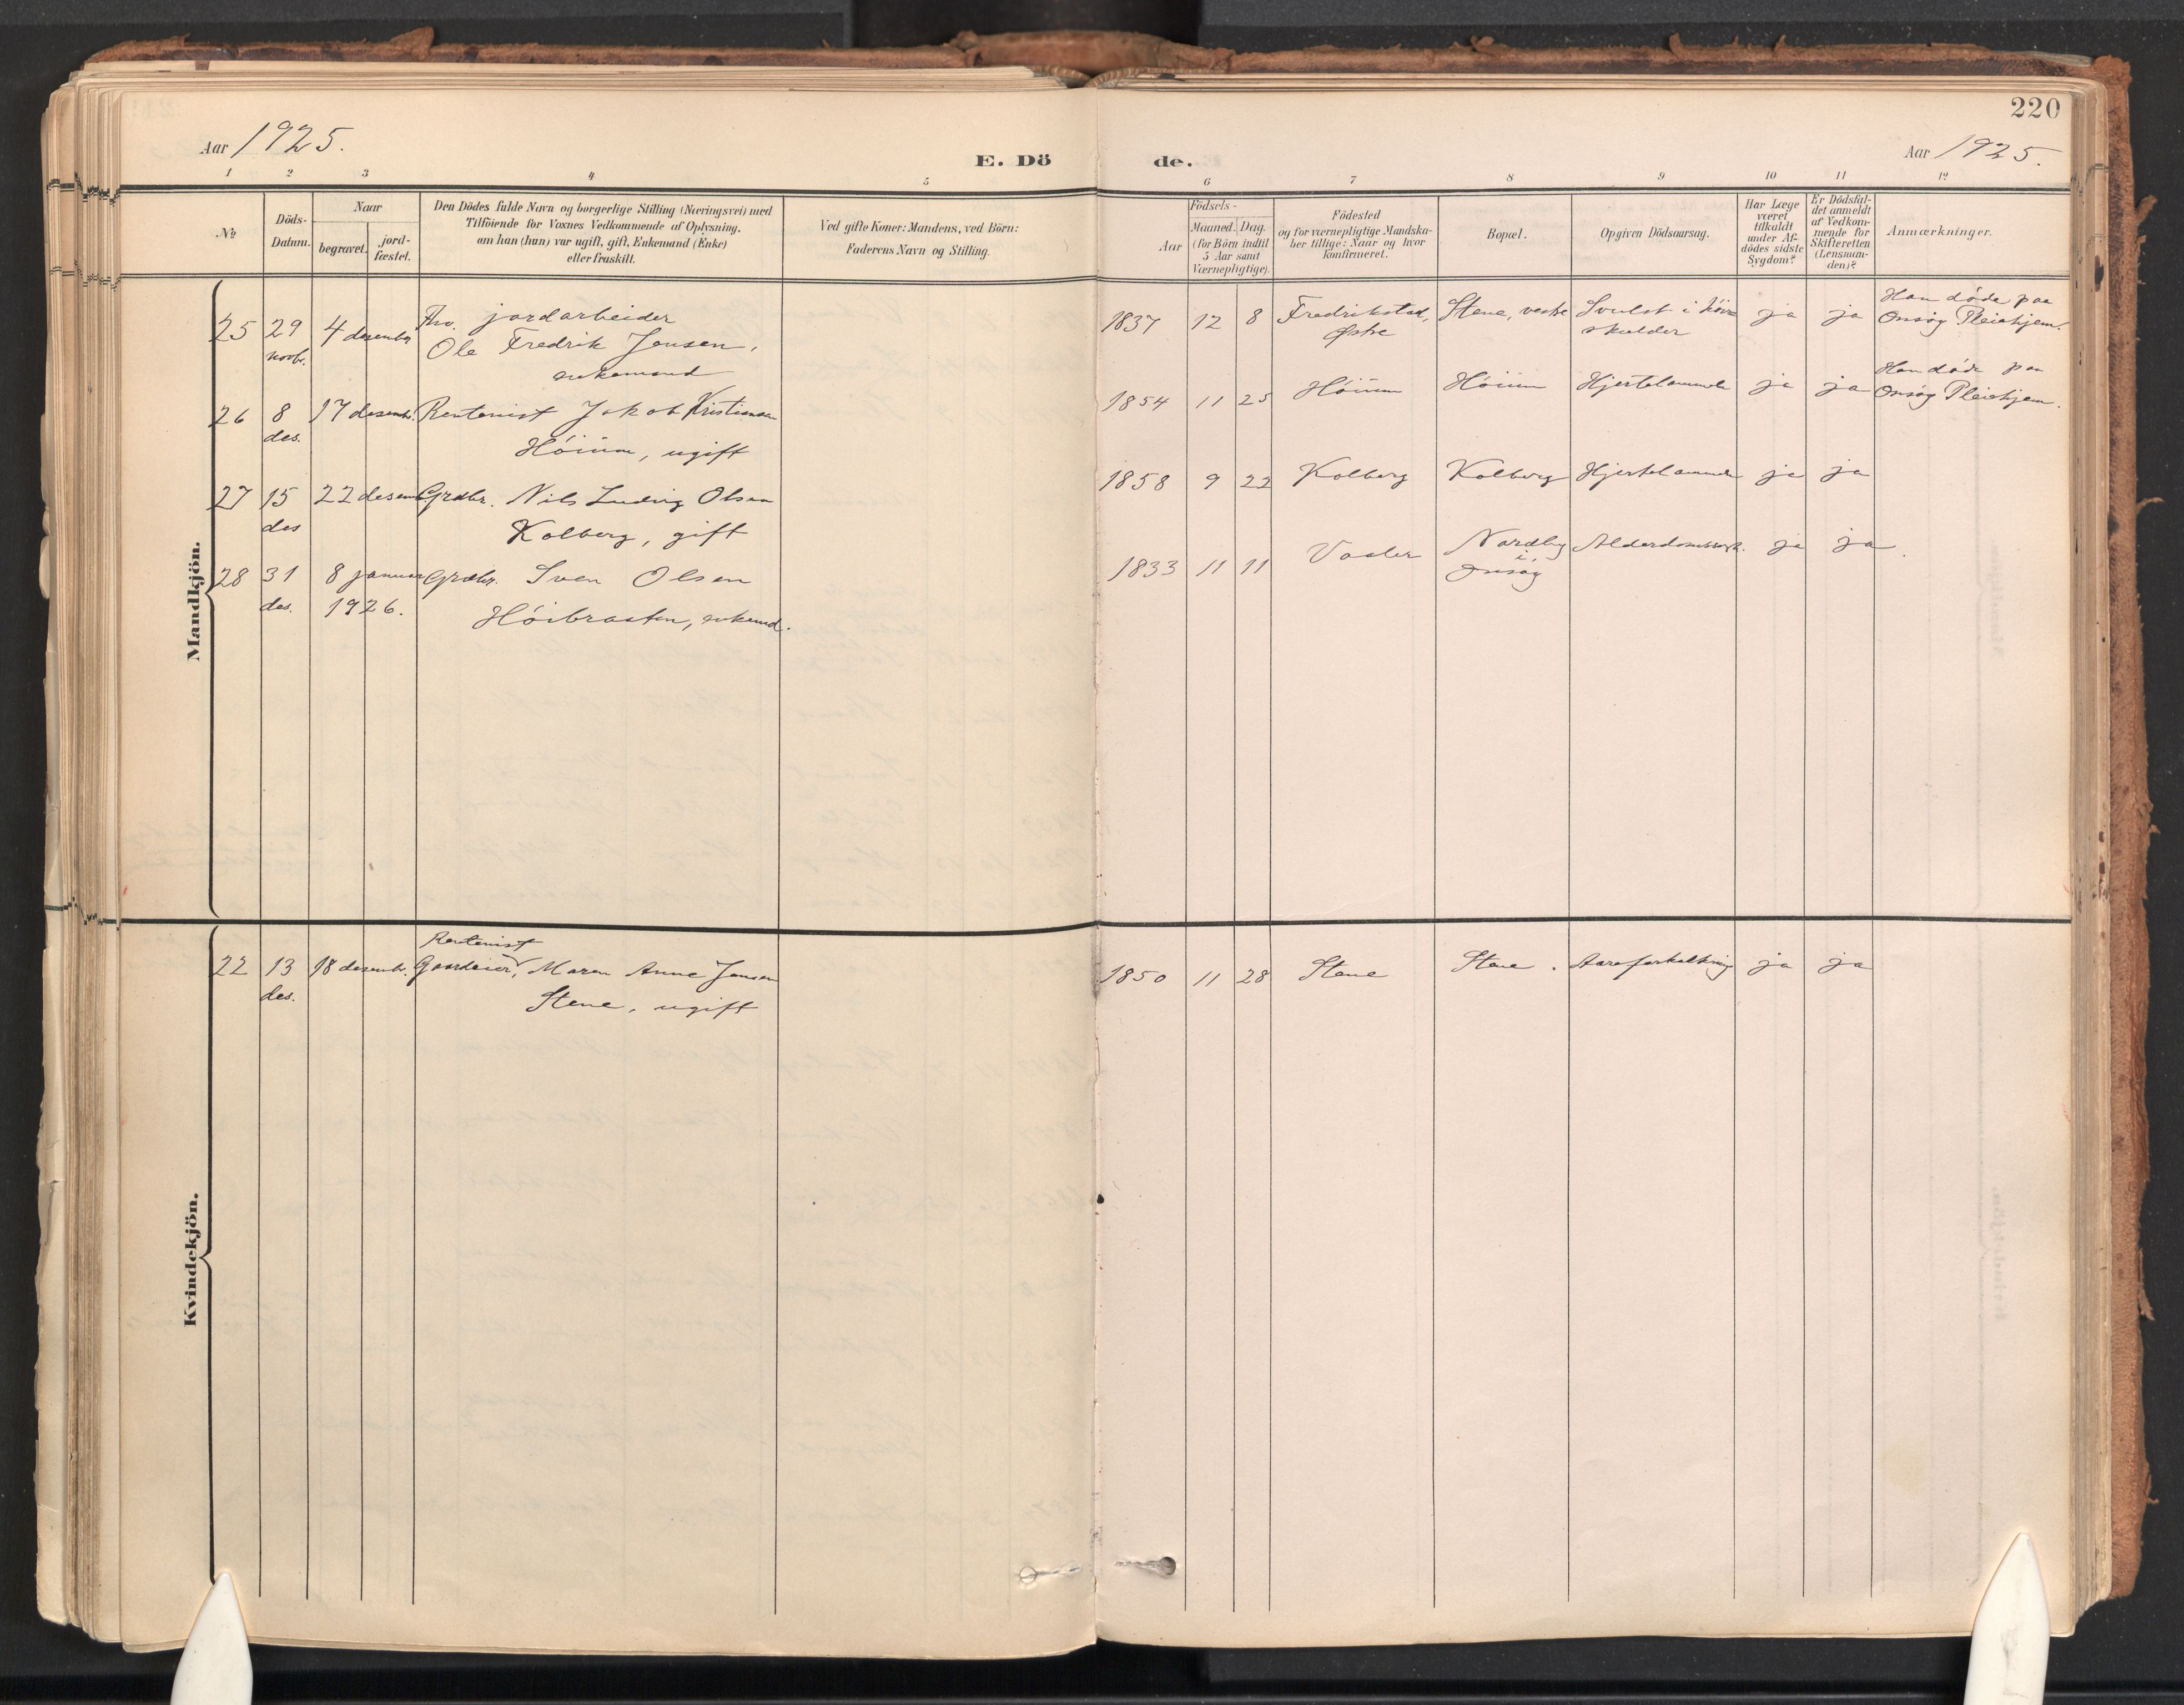 220
Aar 1925.
E. Dö de.
Aar 1925.
1 2 3 4 5 6 7 8 9 10 11 12
No
Döds-
Datum.
Naar
begravet.
jord-
fæstet.
Den Dödes fulde Navn og borgerlige Stilling (Næringsvei) med
Tilföiende for Voxnes Vedkommende af Oplysning,
om han (hun) var ugift, gift, Enkemand (Enke)
eller fraskilt.
Ved gifte Koner: Mandens, ved Börn:
Faderens Navn og Stilling.
Födsels-
Aar
Maaned. Dag.
(for Börn indtil
5 Aar samt
Værnepligtige).
Födested
og for værnepligtige Mandska-
ber tillige: Naar og hvor
konfirmeret.
Bopæl.
Opgiven Dödsaarsag.
Har Læge
været
tilkaldt
under Af-
dödes sidste
Sygdom?
Er Dödsfal-
det anmeldt
af Vedkom-
mende for
Skifteretten
(Lensman-
den)?
Anmærkninger.
Mandkjön.
25 29 4 desember Fhv. jordarbeider 1837 12 8 Fredrikstad, Stene, vestre Svulst i höire ja ja Han döde paa
novbr. Ole Fredrik Jensen, Østre skulder Onsøy Pleiehjem.
enkemand
26 8 17 desemb. Rentenist Jakob Kristiansen 1854 11 25 Höium Höium Hjertelammelse ja ja Han döde paa
des. Höium, ugift Onsøy Pleiehjem.
27 15 22 desemb Grdbr. Nils Ludvig Olsen 1858 9 22 Kolberg Kolberg Hjertelammelse ja ja
des Kolberg, gift
28 31 8 januar Grdbr. Sven Olsen 1833 11 11 Vaaler Nordby i Onsøy Alderdomssvk. ja ja
des. 1926. Höibraaten, enkemd.
Kvindekjön.
Rentenist
22 13 18 desemb. Gaardeier, Maren Anne Jensen 1850 11 28 Stene Stene. Aareforkalkning ja ja
des. Stene, ugift